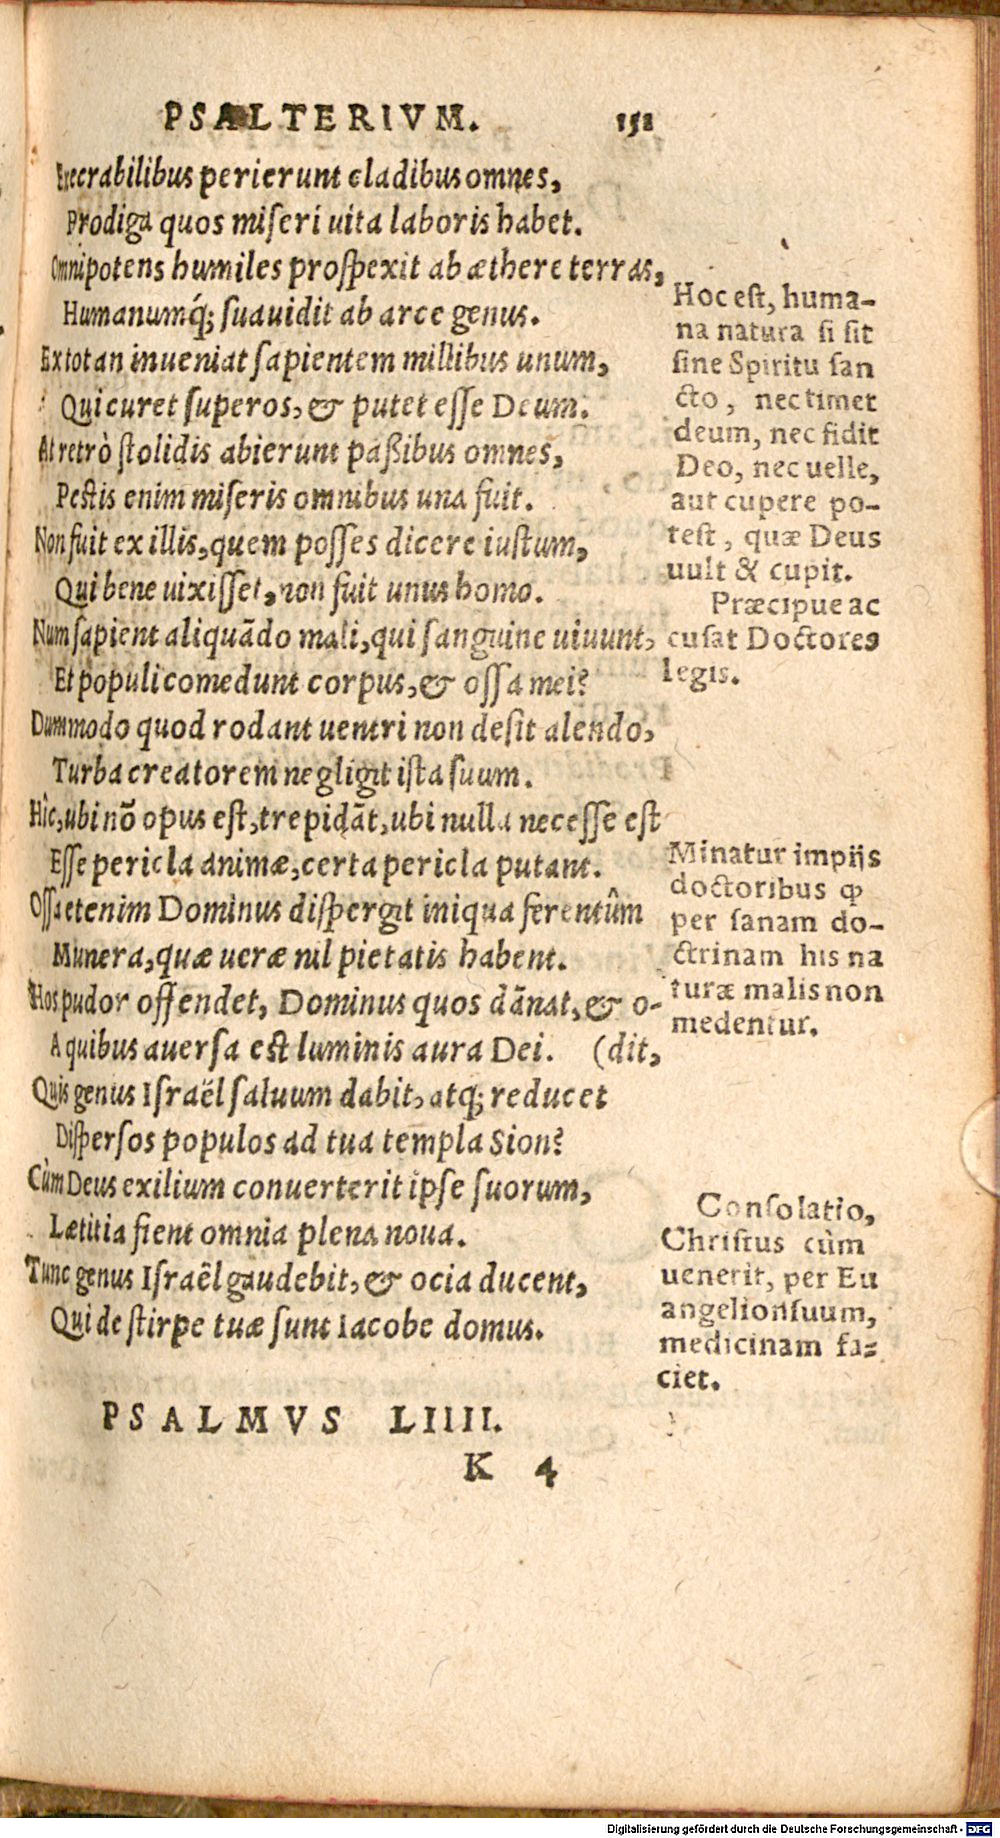 PSALTERIVM. 151
Execrabilibus perierunt cladibus omnes,
Prodiga quos miseri uita laboris habet.
Omnipotens humiles prospexit ab æthere terras,
Humanumq́; suauidit ab arce genus.
Ex tot an inueniat sapientem millibus unum,
Qui curet superos, & putet esse Deum.
At retrò stolidis abierunt paßibus omnes,
Pestis enim miseris omnibus una fuit.
Non fuit ex illis, quem posses dicere iustum,
Qui bene uixisset, non fuit unus homo.
Num sapient aliquãdo mali, qui sanguine uiuunt,
Et populi comedunt corpus, & ossa mei?
Dummodo quod rodant uentri non desit alendo,
Turba creatorem negligit ista suum.
Hîc, ubi nõ opus est, trepidãt, ubi nulla necesse est
Esse pericla animæ, certa pericla putant.
Ossa etenim Dominus dispergit iniqua ferentûm
Munera, quæ ueræ nil pietatis habent.
Hos pudor offendet, Dominus quos dãnat, & o-
A quibus auersa est luminis aura Dei. (dit,
Quis genus Israël saluum dabit, atq; reducet
Dispersos populos ad tua templa Sion?
Cùm Deus exilium conuerterit ipse suorum,
Lætitia fient omnia plena noua.
Tunc genus Israël gaudebit, & ocia ducent,
Qui de stirpe tuæ sunt Iacobe domus.
PSALMVS LIIII.
K 4
Hoc est, huma-
na natura si sit
sine Spiritu san
cto, nec timet
deum, nec fidit
Deo, nec uelle,
aut cupere po-
test, quæ Deus
uult & cupit.
Præcipue ac
cusat Doctores
legis.
Minatur impijs
doctoribus ꝙ
per sanam do-
ctrinam his na
turæ malis non
medentur.
Consolatio,
Christus cùm
uenerit, per Eu
angelion suum,
medicinam fa-
ciet.
Digitalisierung gefördert durch die Deutsche Forschungsgemeinschaft - DFG